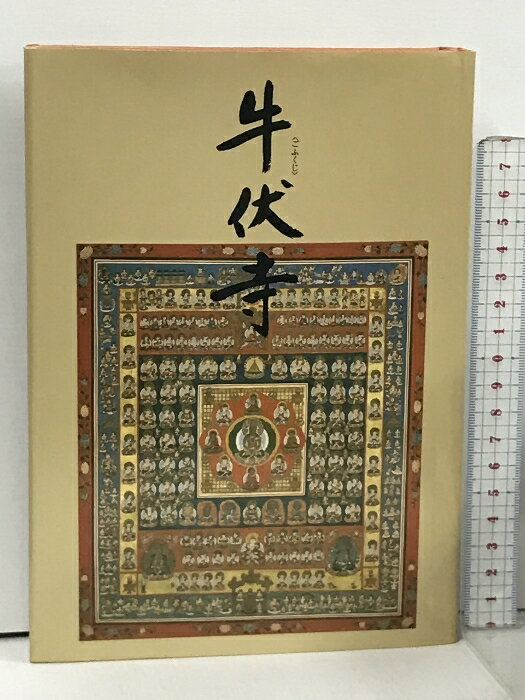 牛伏寺
(ごふくじ)
7
6
5
4
3
2
1
0
9
8
7
6
5
4
3
2
1